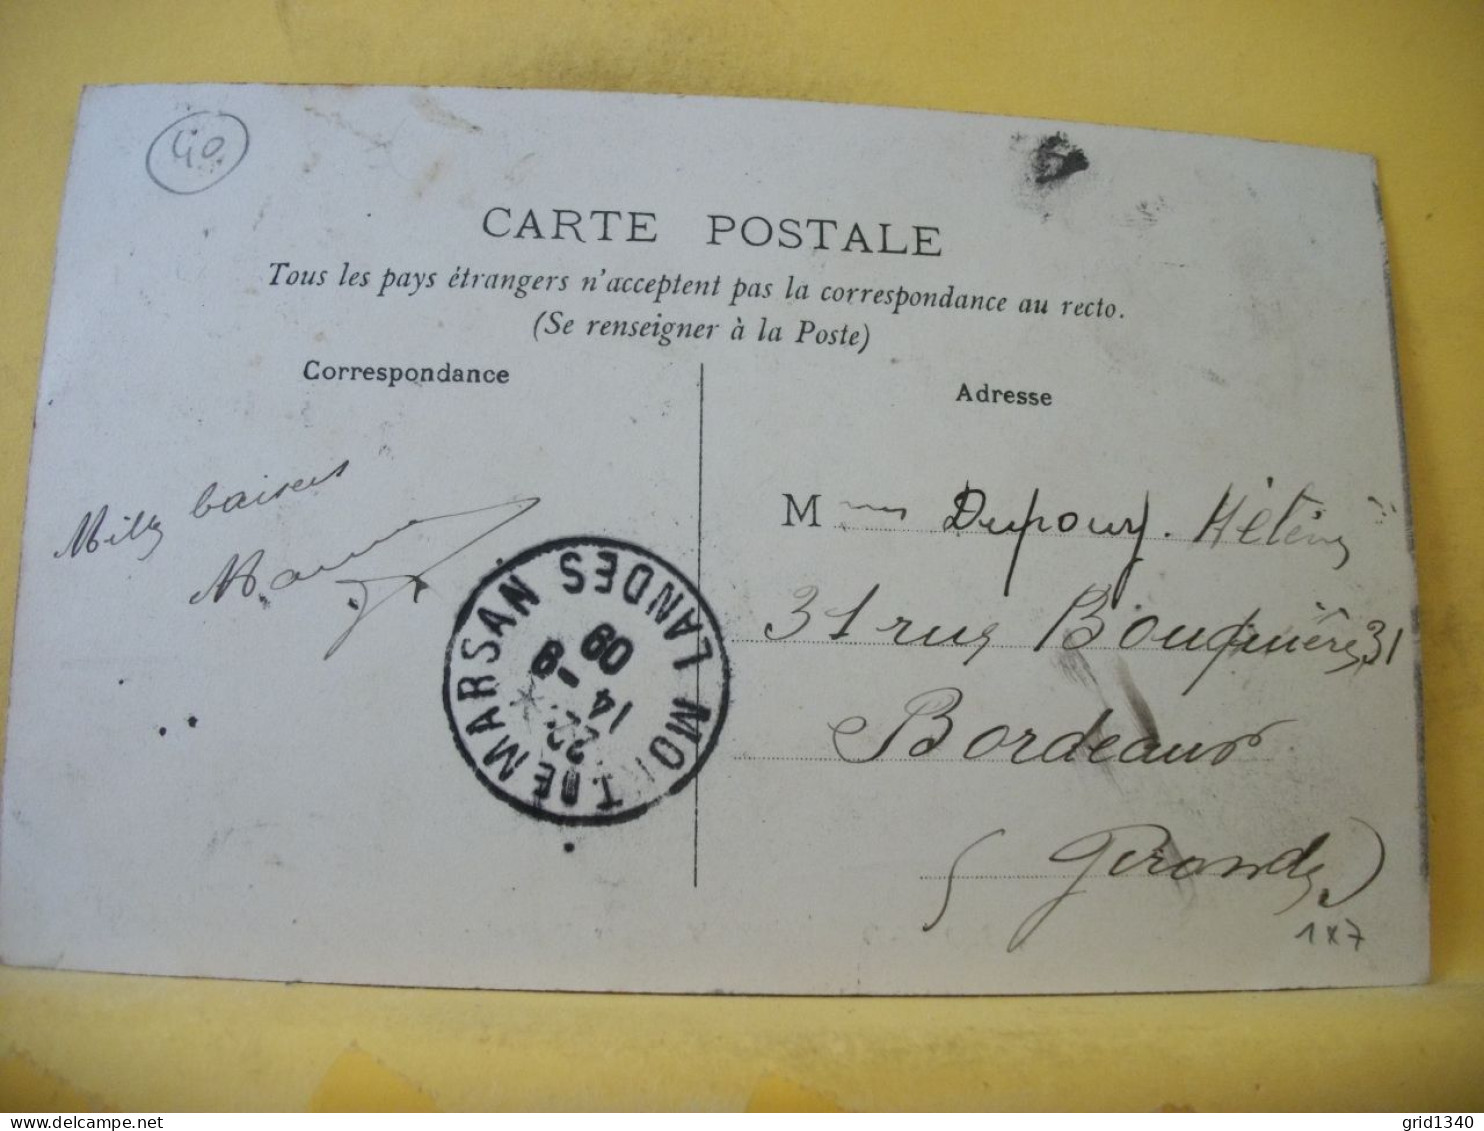 40
CARTE POSTALE
Tous les pays étrangers n'acceptent pas la correspondance au recto.
(Se renseigner à la Poste)
Correspondance
Adresse
Mille baisers
Mme Dupouy. Hélène
31 rue Bouquière 31
Bordeaux
(Gironde)
1x7
MONT DE MARSAN LANDES
22
14 -8
09
grid1340